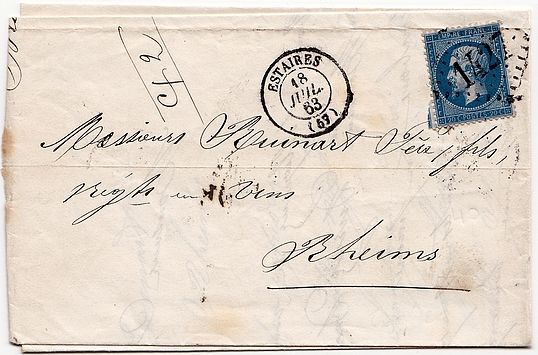 C42
ESTAIRES
18
JUIL.
63
(57)
EMPIRE FRANC
20 C POSTES 20 C
142
Messieurs Ruinart Père, fils,
négts en Vins
Rheims